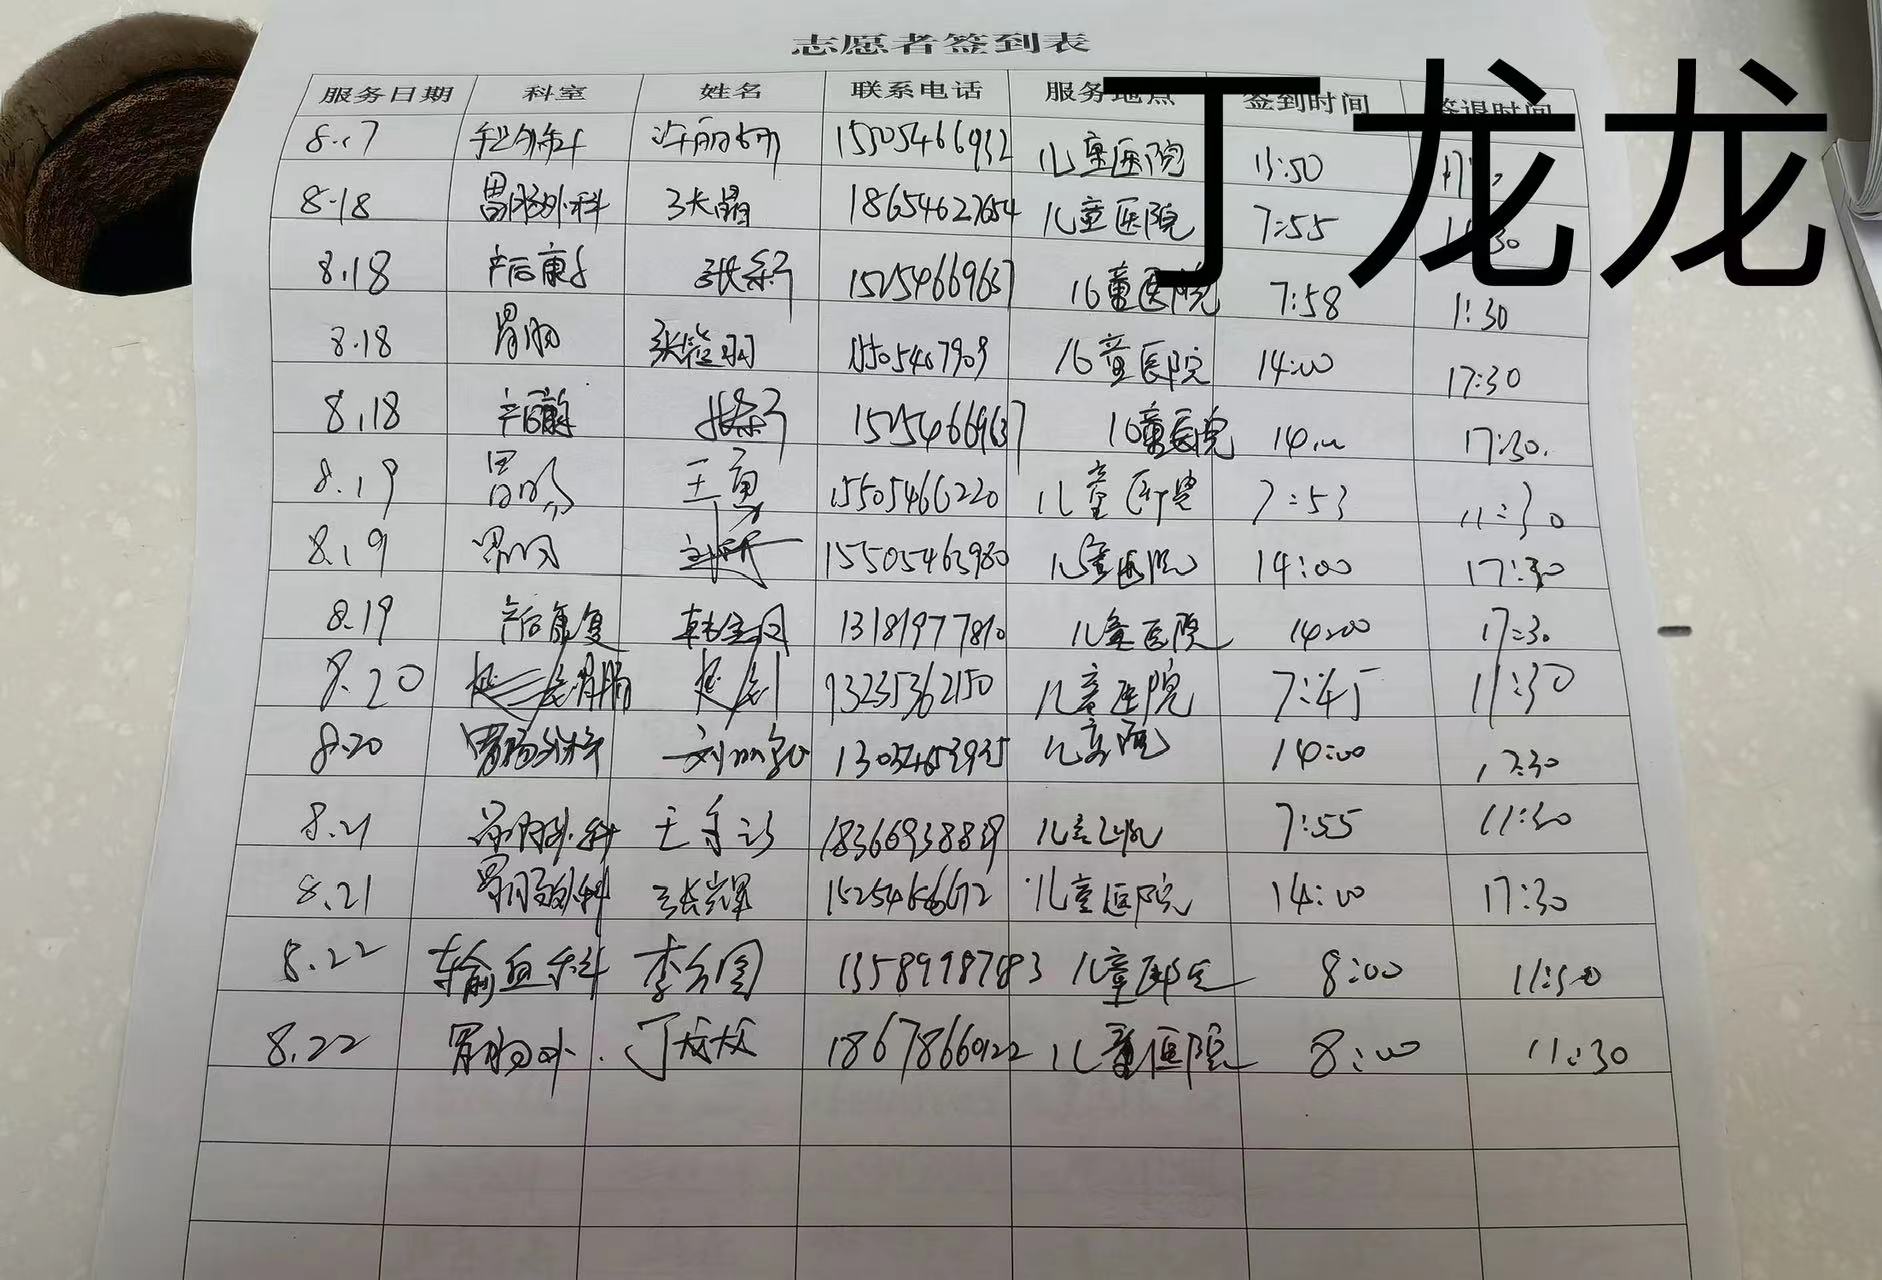 志愿者签到表
丁龙龙
服务日期 科室 姓名 联系电话 服务地点 签到时间 签退时间
8.17 15505466932 儿童医院 13:50
8.18 胃肠外科 张晶 18654627654 儿童医院 7:55 11:30
8.18 产后康复 15254669637 儿童医院 7:58 11:30
8.18 胃肠 儿童医院 14:00 17:30
8.18 产后康复 15254669637 儿童医院 14:00 17:30.
8.19 胃肠 王勇 15505466220 儿童医院 7:53 11:30
8.19 胃肠 15505463980 儿童医院 14:00 17:30
8.19 产后康复 13181977810 儿童医院 14:00 17:30
8.20 胃肠 儿童医院 7:45 11:30
8.20 胃肠外科 儿童医院 14:00 17:30
8.21 胃肠外科 18366938839 儿童医院 7:55 11:30
8.21 胃肠外科 张辉 儿童医院 14:00 17:30
8.22 输血科 13589987783 儿童医院 8:00 11:30
8.22 胃肠外. 丁龙龙 18678660122 儿童医院 8:00 11:30